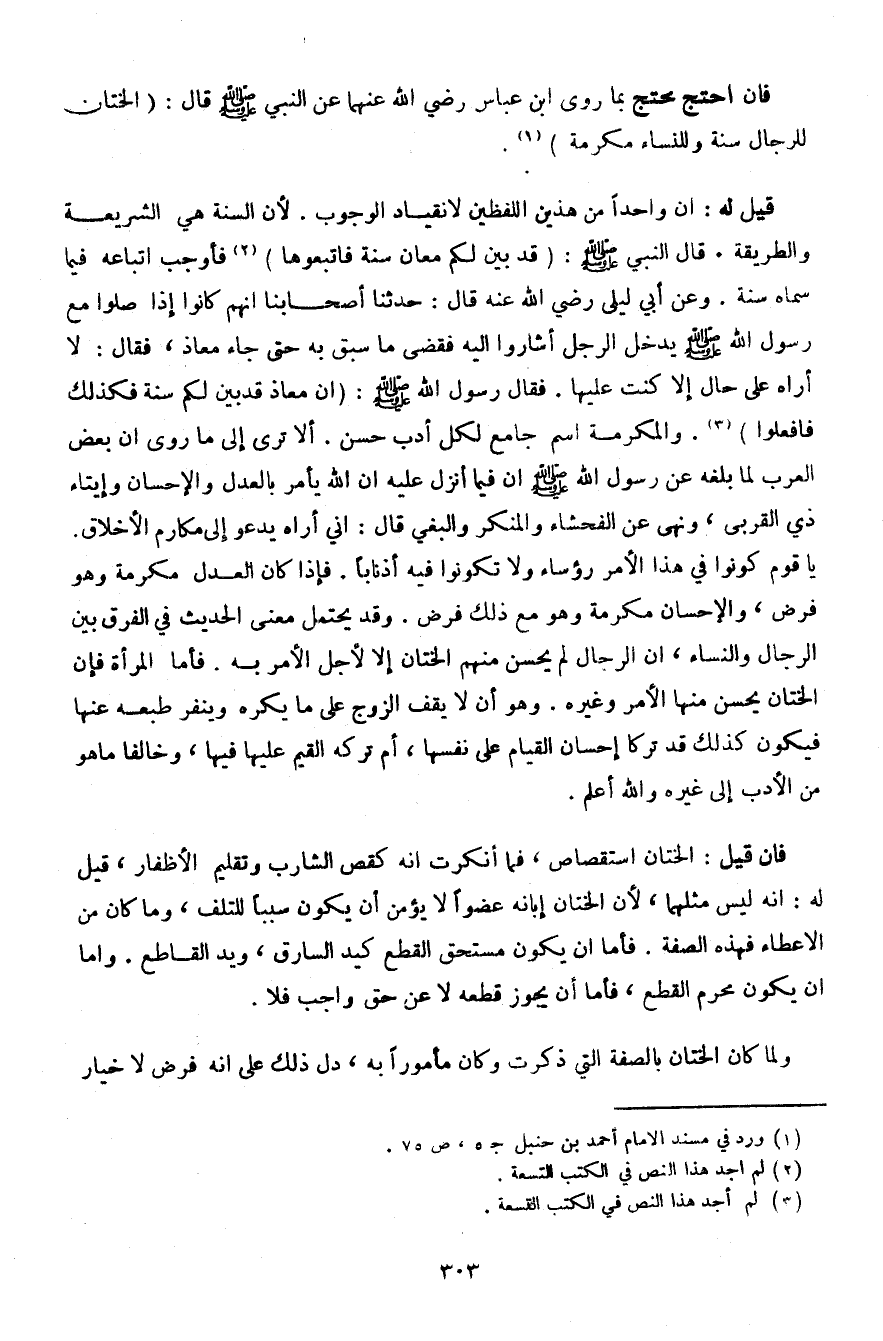 فان احتج محتج بما روى ابن عباس رضي الله عنهما عن النبي ﷺ قال : ( الختان
للرجال سنة وللنساء مكرمة ) (١) .
قيل له : ان واحداً من هذين اللفظين لانقيـاد الوجوب . لأن السنة هي الشريعـــة
والطريقة . قال النبي ﷺ : ( قد بين لكم معان سنة فاتبعوها ) (٢) فأوجب اتباعه فيما
سماه سنة . وعن أبي ليلى رضي الله عنه قال : حدثنا أصحـــابنا انهم كانوا إذا صلوا مع
رسول الله ﷺ يدخل الرجل أشاروا اليه فقضى ما سبق به حتى جاء معاذ ، فقال : لا
أراه على حال إلا كنت عليها . فقال رسول الله ﷺ : (ان معاذ قدبين لكم سنة فكذلك
فافعلوا ) (٣) . والمكرمـة اسم جامع لكل أدب حسن . ألا ترى إلى ما روى ان بعض
العرب لما بلغه عن رسول الله ﷺ ان فيما أنزل عليه ان الله يأمر بالعدل والإحسان وإيتاء
ذي القربى ، ونهى عن الفحشاء والمنكر والبغي قال : اني أراه يدعو إلى مكارم الأخلاق.
يا قوم كونوا في هذا الأمر رؤساء ولا تكونوا فيه أذناباً . فإذا كان العـدل مكرمة وهو
فرض ، والإحسان مكرمة وهو مع ذلك فرض . وقد يحتمل معنى الحديث في الفرق بين
الرجال والنساء ، ان الرجال لم يحسن منهم الختان إلا لأجل الأمر بـه . فأما المرأة فإن
الختان يحسن منها الأمر وغيره . وهو أن لا يقف الزوج على ما يكره وينفر طبعـه عنها
فيكون كذلك قد تركا إحسان القيام على نفسها ، أم تركه القيم عليها فيها ، وخالفا ماهو
من الأدب إلى غيره والله أعلم .
فان قيل : الختان استقصاص ، فما أنكرت انه كقص الشارب وتقليم الأظفار ، قيل
له : انه ليس مثلهما ، لأن الختان إبانه عضواً لا يؤمن أن يكون سبباً للتلف ، وما كان من
الاعطاء فهذه الصفة . فأما ان يكون مستحق القطع كيد السارق ، ويد القـاطع . واما
ان يكون محرم القطع ، فأما أن يجوز قطعه لا عن حق واجب فلا .
ولما كان الختان بالصفة التي ذكرت وكان مأموراً به ، دل ذلك على انه فرض لا خيار
(١) ورد في مسند الامام أحمد بن حنبل جـ ٥ ، ص ٧٥ .
(٢) لم اجد هذا النص في الكتب التسعة .
(٣) لم أجد هذا النص في الكتب التسعة .
٣٠٣